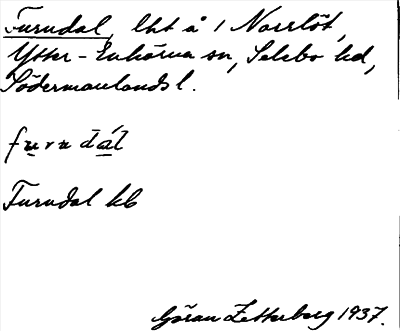 Furudal, lht å 1 Norrlöt,
Ytter-Enhörna sn, Selebo hd,
Södermanlands l.
furudál
Furudal kb
Göran Zetterberg 1937.